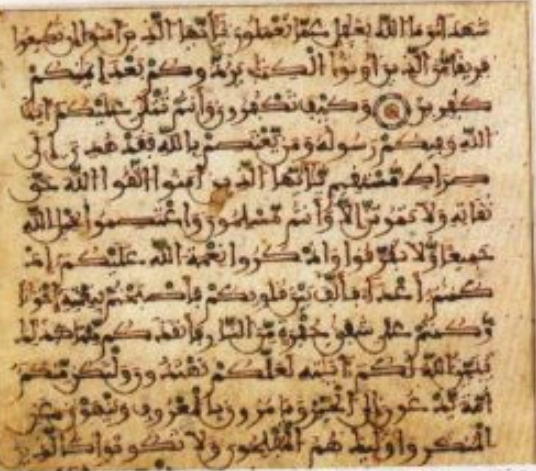 شهداء وما الله بغافل عما تعملون يأيها الذين ءامنوا إن تطيعوا
فريقا من الذين أوتوا الكتب يردوكم بعد إيمنكم
كفرين وكيف تكفرون وأنتم تتلى عليكم ءايت
الله وفيكم رسوله ومن يعتصم بالله فقد هدي إلى
صراط مستقيم يأيها الذين ءامنوا اتقوا الله حق
تقاته ولا تموتن إلا وأنتم مسلمون واعتصموا بحبل الله
جميعا ولا تفرقوا واذكروا نعمة الله عليكم إذ
كنتم أعداء فألف بين قلوبكم فأصبحتم بنعمته إخونا
وكنتم على شفا حفرة من النار فأنقذكم منها كذلك
يبين الله لكم ءايته لعلكم تهتدون ولتكن منكم
أمة يدعون إلى الخير ويأمرون بالمعروف وينهون عن
المنكر وأولئك هم المفلحون ولا تكونوا كالذين